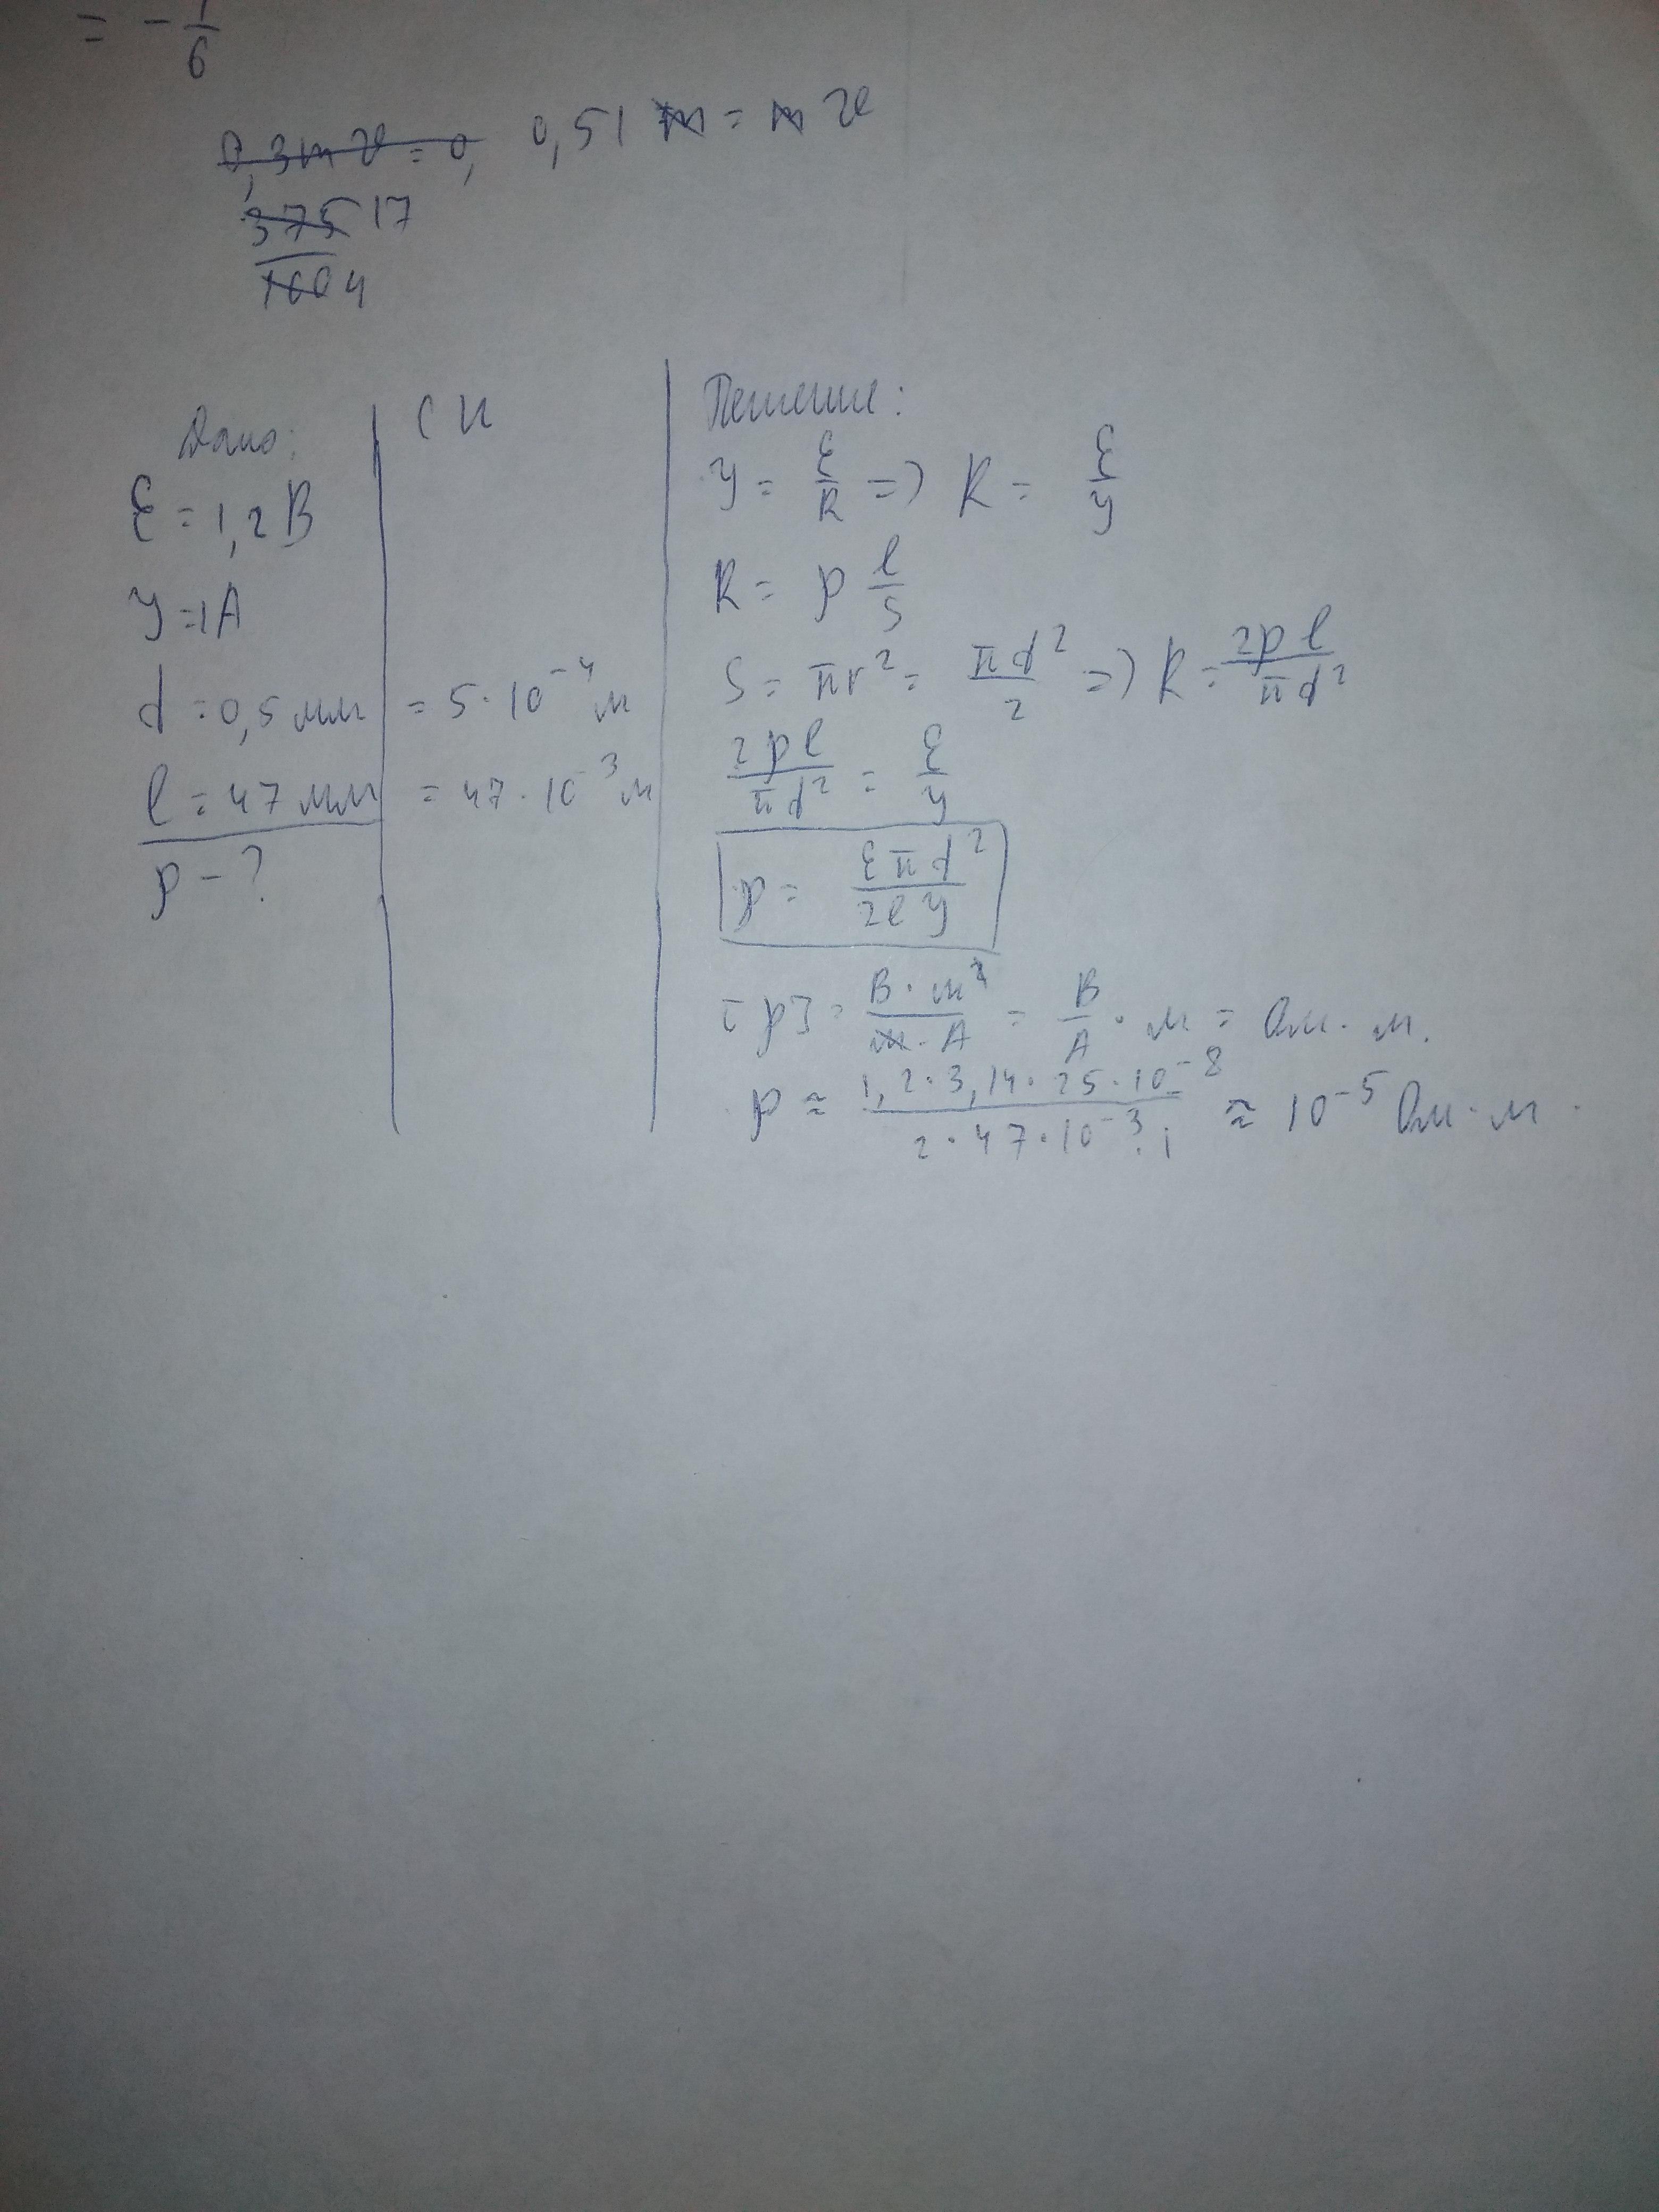 = - 1/6
0,3mv = 0, 0,51 m = m v
375 17
100 4
Дано:
ℰ = 1,2 В
У = 1А
d = 0,5 мм
l = 47 мм
ρ - ?
СИ
= 5·10⁻⁴ м
= 47·10⁻³ м
Решение:
У = ℰ/R => R = ℰ/У
R = ρ l/S
S = πr² = πd²/2 => R = 2ρl/πd²
2ρl/πd² = ℰ/У
ρ = ℰπd²/2lУ
[ρ] = В·м²/м·А = В/А · м = Ом·м.
ρ ≈ 1,2·3,14·25·10⁻⁸/2·47·10⁻³·1 ≈ 10⁻⁵ Ом·м.